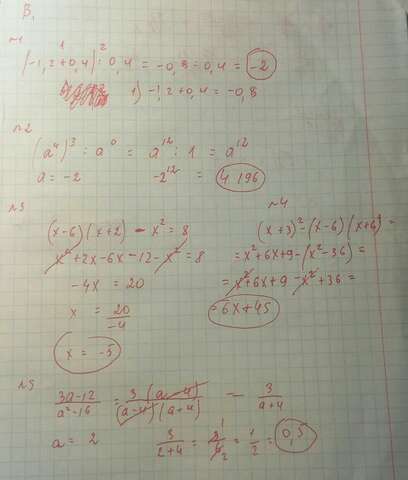 В1
№1
(-1,2+0,4):0,4 = -0,8:0,4 = -2
1) -1,2+0,4 = -0,8
№2
(a⁴)³ : a⁰ = a¹² : 1 = a¹²
a = -2 -2¹² = 4 196
№3
(x-6)(x+2) - x² = 8
x² + 2x - 6x - 12 - x² = 8
-4x = 20
x = 20/-4
x = -5
№4
(x+3)² - (x-6)(x+6) =
= x² + 6x + 9 - (x² - 36) =
= x² + 6x + 9 - x² + 36 =
= 6x + 45
№5
3a-12/a²-16 = 3(a-4)/(a-4)(a+4) = 3/a+4
a = 2 3/2+4 = 3/6 = 1/2 = 0,5